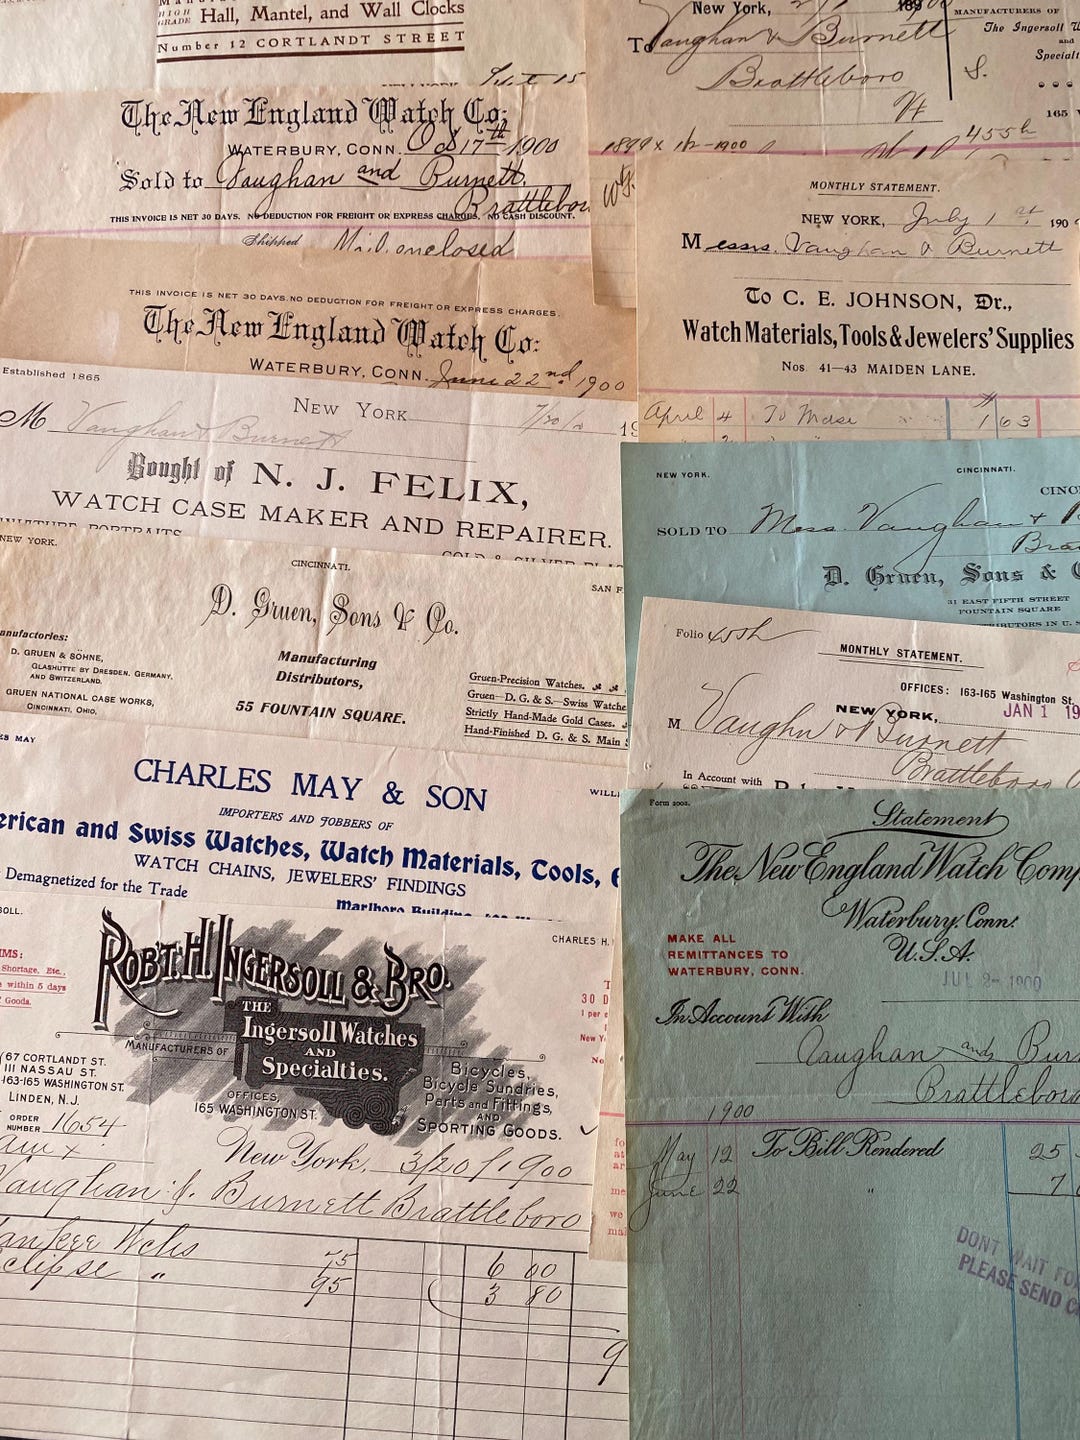 HIGH GRADE Hall, Mantel, and Wall Clocks
Number 12 CORTLANDT STREET
The New England Watch Co:
WATERBURY, CONN. Oct 17th 1900
Sold to Vaughan and Burnett,
Brattleboro
THIS INVOICE IS NET 30 DAYS. NO DEDUCTION FOR FREIGHT OR EXPRESS CHARGES. NO CASH DISCOUNT.
Shipped M.O. enclosed
THIS INVOICE IS NET 30 DAYS. NO DEDUCTION FOR FREIGHT OR EXPRESS CHARGES.
The New England Watch Co:
WATERBURY, CONN. June 22nd 1900
Established 1865
NEW YORK 7/20/0 19
M Vaughan & Burnett
Bought of N. J. FELIX,
WATCH CASE MAKER AND REPAIRER.
MINIATURE PORTRAITS
NEW YORK.
CINCINNATI.
SAN F
D. Gruen, Sons & Co.
anufactories:
D. GRUEN & SÖHNE,
GLASHÜTTE BY DRESDEN, GERMANY,
AND SWITZERLAND.
GRUEN NATIONAL CASE WORKS,
CINCINNATI, OHIO.
Manufacturing
Distributors,
55 FOUNTAIN SQUARE.
Gruen-Precision Watches.
Gruen—D. G. & S.—Swiss Watche
Strictly Hand-Made Gold Cases.
Hand-Finished D. G. & S. Main S
ES MAY
WILL
CHARLES MAY & SON
IMPORTERS AND JOBBERS OF
erican and Swiss Watches, Watch Materials, Tools,
WATCH CHAINS, JEWELERS' FINDINGS
Demagnetized for the Trade
Marlboro Building
SOLL.
CHARLES H.
IMS:
Shortage, Etc.,
e within 5 days
Goods.
ROB'T. H. INGERSOLL & BRO.
MANUFACTURERS OF
THE
Ingersoll Watches
AND
Specialties.
67 CORTLANDT ST.
111 NASSAU ST.
163-165 WASHINGTON ST.
LINDEN, N.J.
OFFICES,
165 WASHINGTON ST.
Bicycles,
Bicycle Sundries,
Parts and Fittings,
AND
SPORTING GOODS.
30 D
1 per
New Y
No
ORDER NUMBER 1654
New York, 3/20/1900
Vaughan & Burnett Brattleboro
Yankee Wchs 75 6 00
Eclipse " 95 3 80
9
New York,
To Vaughan & Burnett
Brattleboro
Vt
MANUFACTURERS OF
The Ingersoll W
and
Speciali
165
1899 x 1/2-1900
455h
MONTHLY STATEMENT.
NEW YORK, July 1st 190
Messrs. Vaughan & Burnett
To C. E. JOHNSON, Dr.,
Watch Materials, Tools & Jewelers' Supplies
Nos. 41—43 MAIDEN LANE.
April 4 To Mdse 1 63
NEW YORK.
CINCINNATI.
CINC
SOLD TO Mess. Vaughan & B
Bra
D. Gruen, Sons & C
31 EAST FIFTH STREET
FOUNTAIN SQUARE
TRIBUTORS IN U. S
Folio 455h
MONTHLY STATEMENT.
OFFICES: 163-165 Washington St.
NEW YORK, JAN 1 19
M Vaughn & Burnett
Brattleboro
In Account with
Form 2002.
Statement
The New England Watch Comp
Waterbury, Conn.
U.S.A.
MAKE ALL
REMITTANCES TO
WATERBURY, CONN.
JUL 2- 1900
In Account With
Vaughan and Burn
Brattleboro
1900
May 12 To Bill Rendered 25
June 22 " 7
DONT WAIT FO
PLEASE SEND C